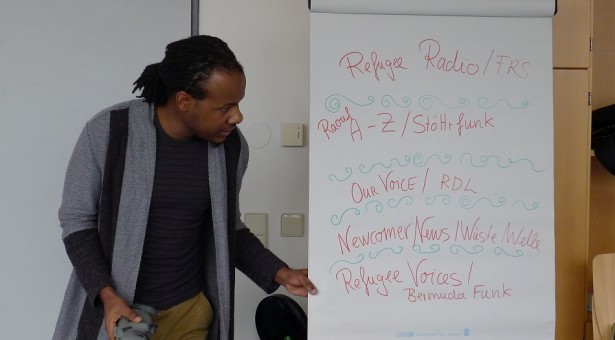 Refugee Radio / FRS
Raouf A-Z / Störfunk
OUR VOICE / RDL
Newcomer News / Wüste Welle
Refugee Voices /
Bermuda Funk